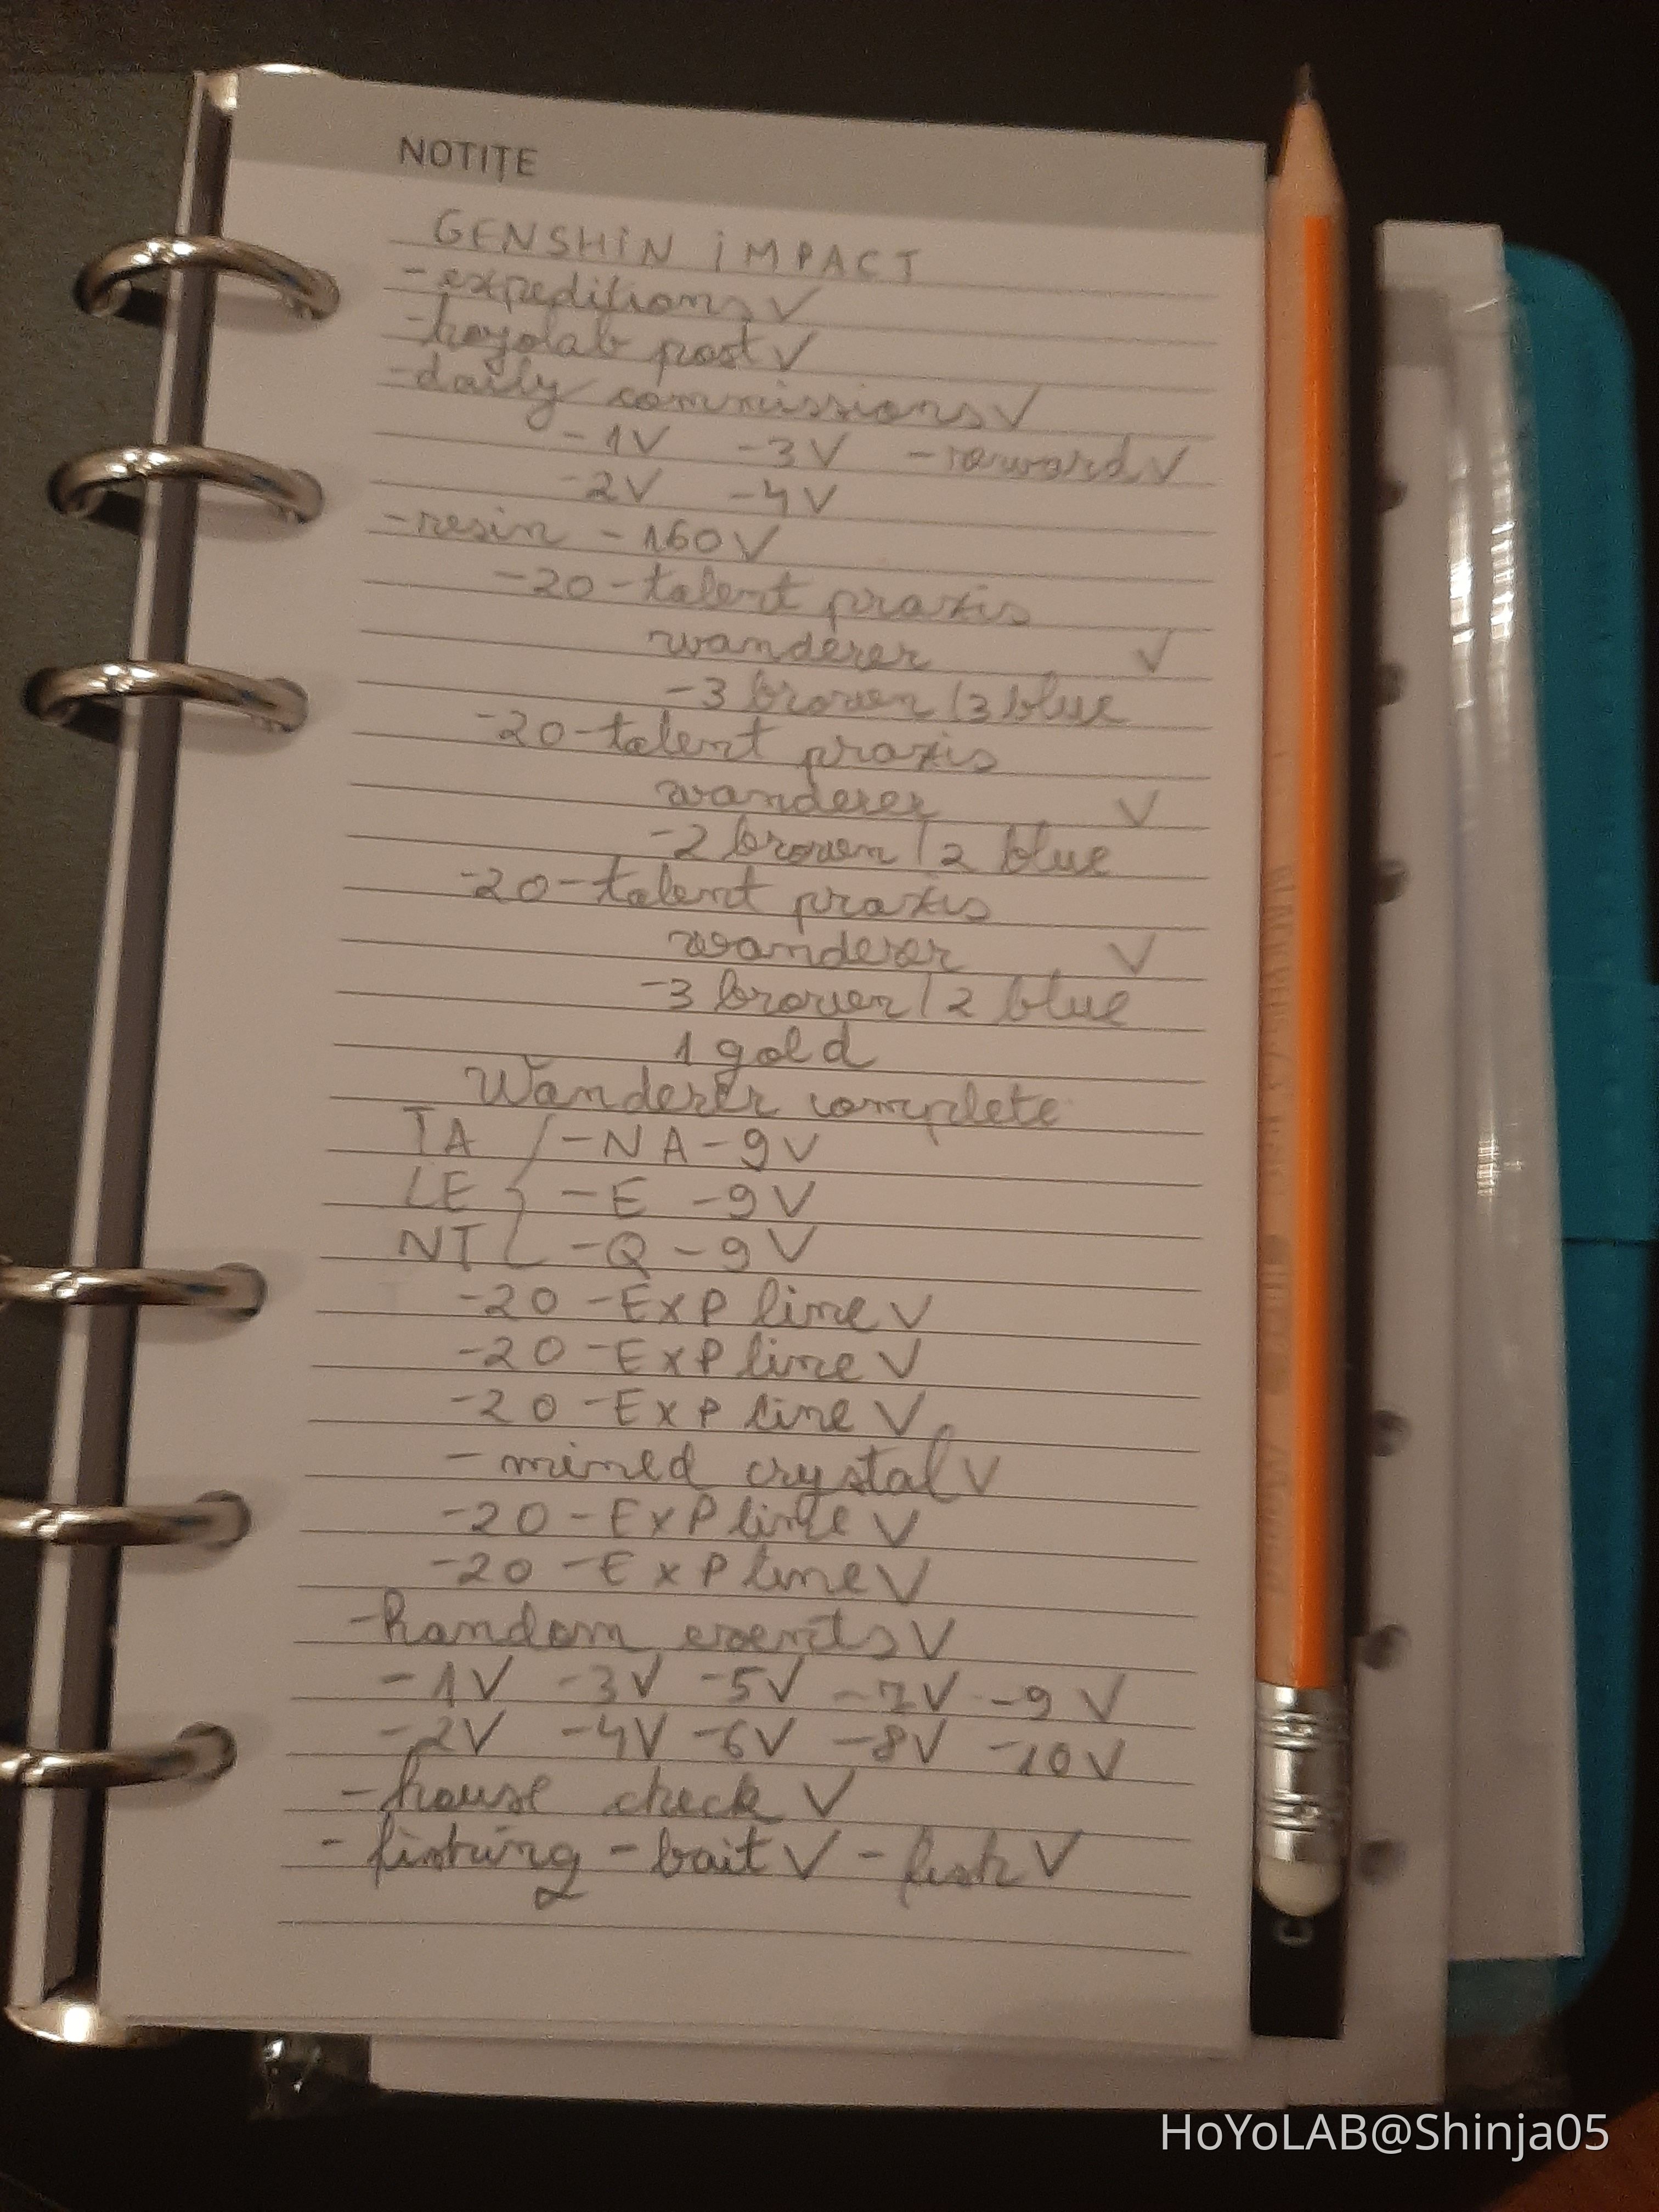 NOTIȚE
GENSHIN IMPACT
-expeditions V
-hoyolab post V
-daily commissions V
-1V -3V -reward V
-2V -4V
-resin -160 V
-20-talent praxis
wanderer V
-3 brown/3 blue
-20-talent praxis
wanderer V
-2 brown/2 blue
-20-talent praxis
wanderer V
-3 brown/2 blue
1 gold
Wanderer complete
TA -NA-9V
LE -E -9V
NT -Q -9V
-20 -EXP line V
-20 -EXP line V
-20 -EXP line V
-mined crystal V
-20 -EXP line V
-20 -EXP line V
-random events V
-1V -3V -5V -7V -9V
-2V -4V -6V -8V -10V
-house check V
-fishing -bait V -fish V
HoYoLAB@Shinja05